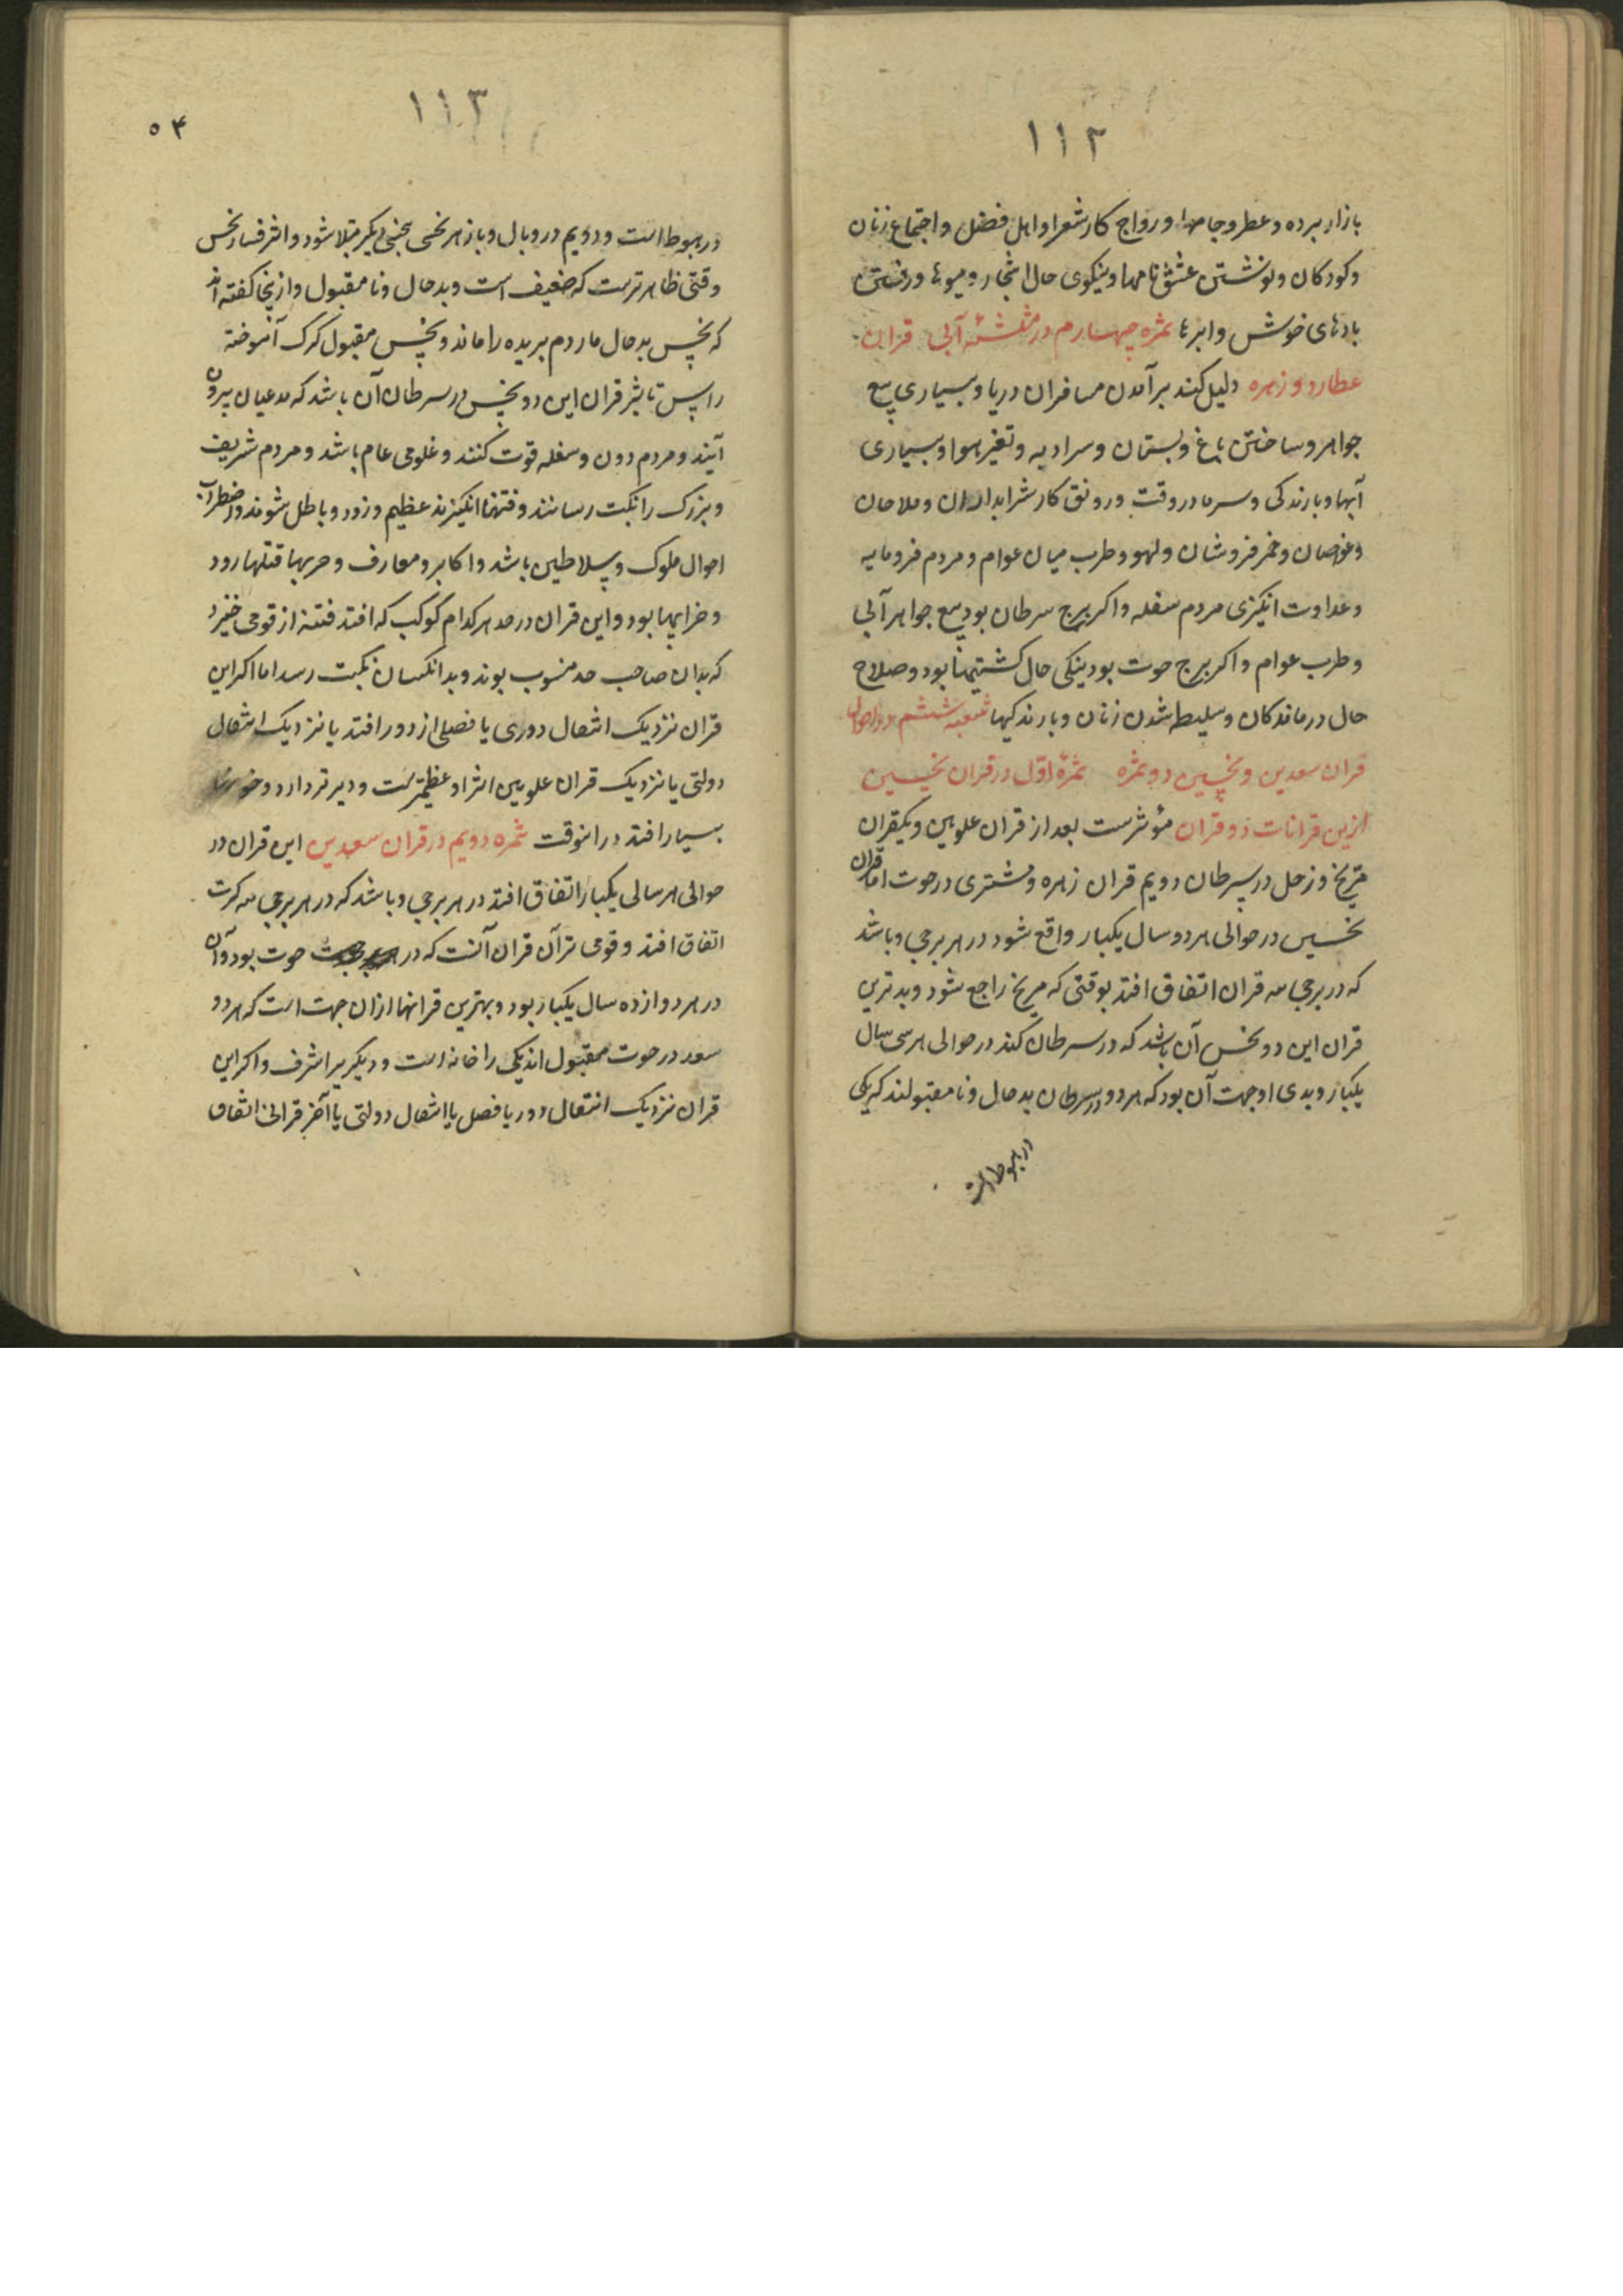 ١١٢
بازار برده و عطر و جامها و رواج کار شعرا و اهل فضل و اجتماع زنان
و کودکان و نوشتن عشق نامها و نیکوی حال اشجار و میوها و رفتن
بادهای خوش و ابرها ثمره چهارم در مثلثهٔ آبی قران
عطارد و زهره دلیل کند بر آمدن مسافران دریا و بسیاری بیع
جواهر و ساختن باغ و بستان و سرادیه و تغیر هوا و بسیاری
آبها و بارندکی و سرما در وقت و رونق کار شرابداران و ملاحان
و غواصان و خمر فروشان و لهو و طرب میان عوام و مردم فرومایه
و عداوت انکیزی مردم سفله و اکر ببرج سرطان بود بیع جواهر آبی
و طرب عوام و اکر ببرج حوت بود نیکی حال کشتیها بود و صلاح
حال درماندکان و سلیط شدن زنان و بارندکیها شعبه ششم در احوال
قران سعدین و نحسین دو ثمره ثمرهٔ اول در قران نحسین
ازین قرانات دو قران مؤثرست بعد از قران علویین و یکقران
مریخ و زحل در سرطان دویم قران زهره و مشتری در حوت اما قران
نحسین در حوالی هر دو سال یکبار واقع شود در هر برجی و باشد
که در برجی سه قران اتفاق افتد بوقتی که مریخ راجع شود و بدترین
قران این دو نحس آن باشد که در سرطان کند در حوالی هر سی سال
یکبار و بدی او جهت آن بود که هر دو در سرطان بدحال و نامقبولند که یکی
در هبوط است
١١٣
٥٤
در هبوط است و دویم در وبال و باز هر نحسی بنحسی دیکر مبتلا شود و اثر فساد نحس
وقتی ظاهرترست که ضعیف است و بدحال و نامقبول و ازینجا کفته اند
که نحس بدحال مار دم بریده را ماند و نحس مقبول کرک آموخته
را پس تاثیر قران این دو نحس در سرطان آن باشد که مدعیان بیرون
آیند و مردم دون و سفله قوت کنند و غلوی عام باشد و مردم شریف
و بزرک را نکبت رسانند و فتنها انکیزند عظیم و زود و باطل شوند و اضطراب
احوال ملوک و سلاطین باشد و اکابر و معارف و حربها قتلها رود
و خرابیها بود و این قران در حد هر کدام کوکب که افتد فتنه از قومی خیزد
که بدان صاحب حد منسوب بوند و بدانکسان نکبت رسد اما اکر این
قران نزدیک انتقال دوری یا فصلی از دور افتد یا نزدیک انتقال
دولتی یا نزدیک قران علویین اثر او عظیمترست و دیرتر دارد و
بسیار افتد در انوقت ثمره دویم در قران سعدین این قران در
حوالی هر سالی یکبار اتفاق افتد در هر برجی و باشد که در هر برجی سه کرت
اتفاق افتد و قوی ترآن قران آنست که در حوت بود و آن
در هر دوازده سال یکبار بود و بهترین قرانها ازان جهت است که هر دو
سعد در حوت مقبول اند یکی را خانه است و دیکریرا شرف و اکر این
قران نزدیک انتقال دور یا فصل یا انتقال دولتی یا آخر قرانی اتفاق